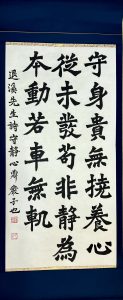 守身貴無撓養心
從未發苟非靜為
本動若車無軏
退溪先生詩守靜心